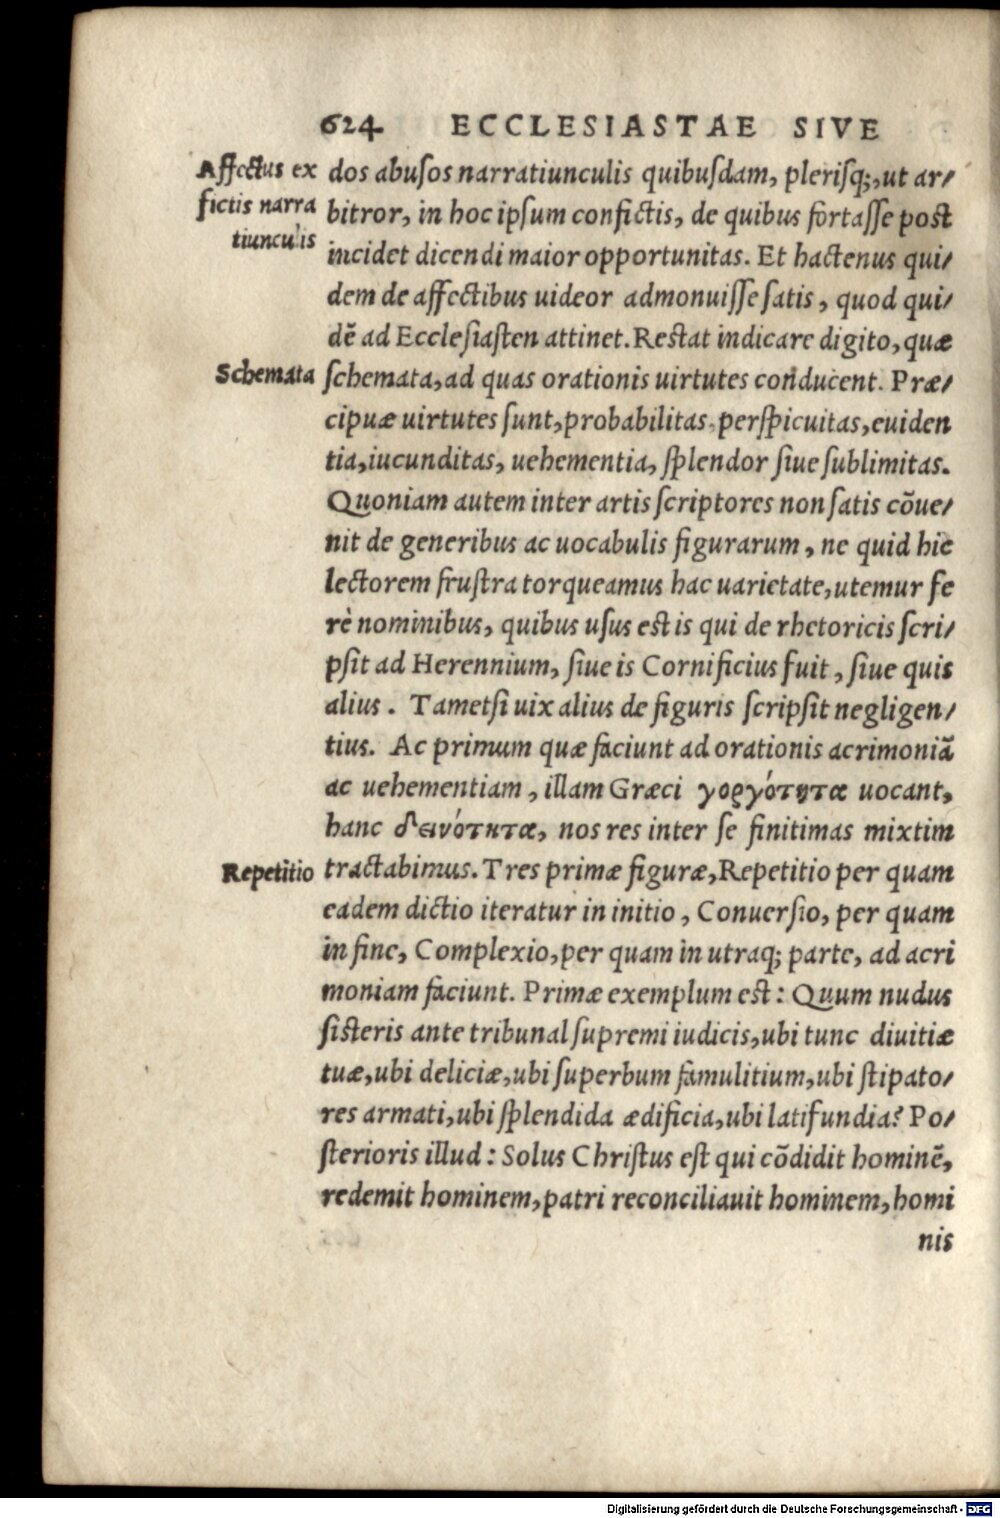 624 ECCLESIASTAE SIVE
Affectus ex
fictis narra
tiunculis
dos abusos narratiunculis quibusdam, plerisq;, ut ar/
bitror, in hoc ipsum confictis, de quibus fortasse post
incidet dicendi maior opportunitas. Et hactenus qui/
dem de affectibus uideor admonuisse satis, quod qui/
dẽ ad Ecclesiasten attinet. Restat indicare digito, quæ
Schemata
schemata, ad quas orationis uirtutes conducent. Præ/
cipuæ uirtutes sunt, probabilitas, perspicuitas, euiden
tia, iucunditas, uehementia, splendor siue sublimitas.
Quoniam autem inter artis scriptores non satis cõue/
nit de generibus ac uocabulis figurarum, ne quid hic
lectorem frustra torqueamus hac uarietate, utemur fe
rè nominibus, quibus usus est is qui de rhetoricis scri/
psit ad Herennium, siue is Cornificius fuit, siue quis
alius. Tametsi uix alius de figuris scripsit negligen/
tius. Ac primum quæ faciunt ad orationis acrimoniã
ac uehementiam, illam Græci γοργότητα uocant,
hanc δεινότητα, nos res inter se finitimas mixtim
Repetitio
tractabimus. Tres primæ figuræ, Repetitio per quam
eadem dictio iteratur in initio, Conuersio, per quam
in fine, Complexio, per quam in utraq; parte, ad acri
moniam faciunt. Primæ exemplum est: Quum nudus
sisteris ante tribunal supremi iudicis, ubi tunc diuitiæ
tuæ, ubi deliciæ, ubi superbum famulitium, ubi stipato/
res armati, ubi splendida ædificia, ubi latifundia? Po/
sterioris illud: Solus Christus est qui cõdidit hominẽ,
redemit hominem, patri reconciliauit hominem, homi
nis
Digitalisierung gefördert durch die Deutsche Forschungsgemeinschaft - DFG